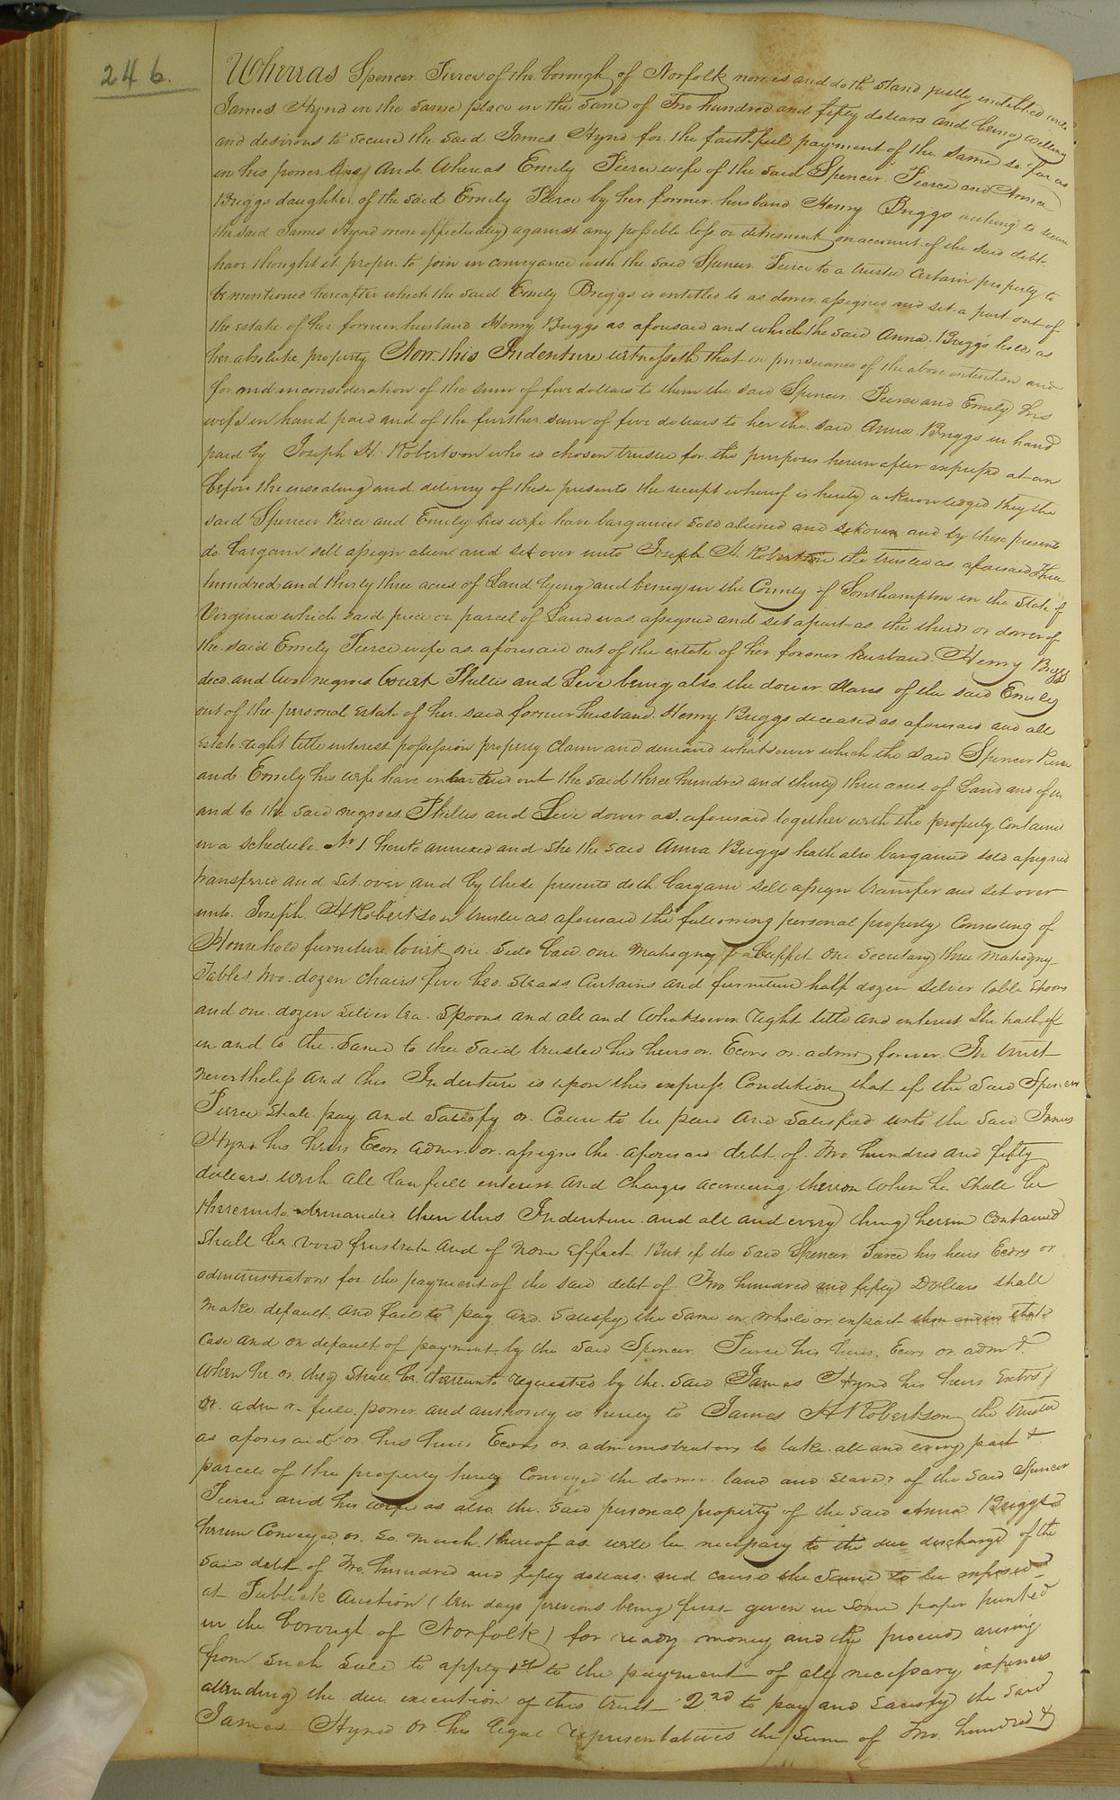 246.
Whereas Spencer Pierce of the borough of Norfolk now is and doth stand justly indebted unto
James Hynd in the same place in the sum of Two hundred and fifty dollars and being willing
and desirous to secure the said James Hynd for the faithful payment of the same so far as
in his power lies And Whereas Emely Pierce wife of the said Spencer Pierce and Anna
Briggs daughter of the said Emely Pierce by her former husband Henry Briggs willing to secure
the said James Hynd more effectually against any possible loss or detriment on account of the said debt
have thought it proper to join in conveyance with the said Spencer Pierce to a trustee Certain property to
be mentioned hereafter which the said Emely Briggs is entitled to as dower assigned and set a part out of
the estate of her former husband Henry Briggs as aforesaid and which the said Anna Briggs holds as
her absolute property Now this Indenture witnesseth that in pursuance of the above intention and
for and in consideration of the sum of five dollars to them the said Spencer Pierce and Emely his
wife in hand paid and of the further sum of five dollars to her the said Anna Briggs in hand
paid by Joseph H. Robertson who is chosen trustee for the purposes hereinafter expressed at or
before the ensealing and delivery of these presents the receipt whereof is hereby acknowledged they the
said Spencer Pierce and Emely his wife have bargained sold aliened and set over and by these presents
do bargain sell assign alien and set over unto Joseph H. Robertson the trustee as aforesaid Three
hundred and thirty three acres of Land lying and being in the County of Southampton in the State of
Virginia which said piece or parcel of Land was assigned and set apart as the thirds or dower of
the said Emely Pierce wife as aforesaid out of the estate of her former husband Henry Briggs
decd. and two negroes towit Phillis and Levi being also the dower slaves of the said Emely
out of the personal Estate of her said former husband Henry Briggs deceased as aforesaid and all
Estate right title interest possession property claim and demand whatsoever which the said Spencer Pierce
and Emely his wife have in the said three hundred and thirty three acres of Land and of in
and to the said negroes Phillis and Levi dower as aforesaid together with the property Contained
in a schedule No 1 hereto annexed and she the said Anna Briggs hath also bargained sold assigned
transferred and set over and by these presents doth bargain sell assign transfer and set over
unto Joseph H Robertson trustee as aforesaid the following personal property Consisting of
Household furniture towit one side board one mahogany buffet one Secretary three mahogny
Tables two dozen chairs five bed steads Curtains and furniture half dozen silver table spoons
and one dozen silver tea spoons and all and whatsoever right title and interest she hath of
in and to the same to the said trustee his heirs or Ecors or admrs forever In trust
nevertheless and this Indenture is upon this express Condition that if the said Spencer
Pierce shall pay and satisfy or Cause to be paid and satisfied unto the said James
Hynd his heirs Ecors admrs or assigns the aforesaid debt of Two hundred and fifty
dollars with all lawfull interest and charges accrueing thereon when he shall be
thereunto demanded then this Indenture and all and every thing herein Contained
shall be void frustrate and of none effect But if the said Spencer Pierce his heirs Ecors or
administrators for the payment of the said debt of Two hundred and fifty Dollars shall
make default and fail to pay and satisfy the same in whole or in part then and in that
case and on default of payment by the said Spencer Pierce his heirs Ecors or admrs
when he or they shall be thereunto requested by the said James Hynd his heirs Exctors
or admrs full power and authority is hereby to James H Robertson the trustee
as aforesaid or his heirs Ecors or administrators to take all and every part &
parcel of the property hereby Conveyed the dower land and slaves of the said Spencer
Pierce and his wife as also the said personal property of the said Anna Briggs
herein Conveyed or so much thereof as will be necessary to the due discharge of the
said debt of Two hundred and fifty dollars and cause the same to be exposed
at Publick Auction (ten days previous being first given in some paper printed
in the borough of Norfolk) for ready money and the proceeds arising
from such sale to apply 1st to the payment of all necessary expences
attending the due execution of this trust 2nd to pay and satisfy the said
James Hynd or his legal representatives the sum of Two hundred &